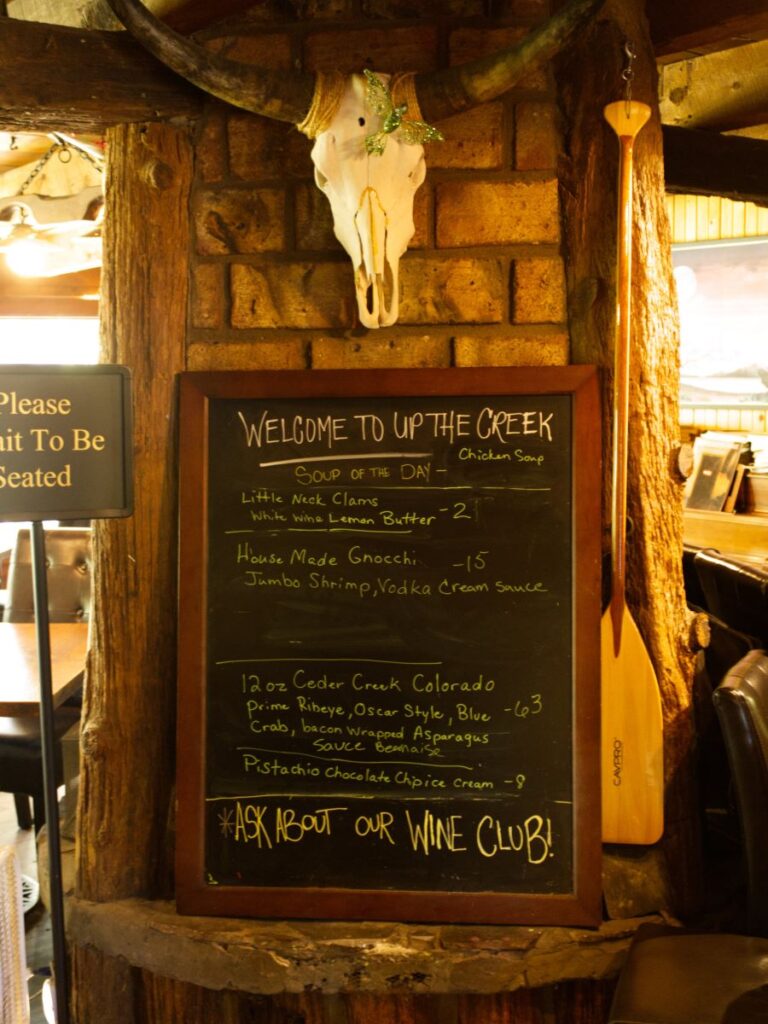 Please
ait To Be
Seated
WELCOME TO UP THE CREEK
Chicken Soup
SOUP OF THE DAY -
Little Neck Clams
White Wine Lemon Butter
House Made Gnocchi -15
Jumbo Shrimp, Vodka Cream Sauce
12oz Ceder Creek Colorado
Prime Ribeye, Oscar Style, Blue -63
Crab, bacon Wrapped Asparagus
Sauce Bearnaise
Pistachio Chocolate Chip ice Cream -8
*ASK ABOUT OUR WINE CLUB!
CAVPRO